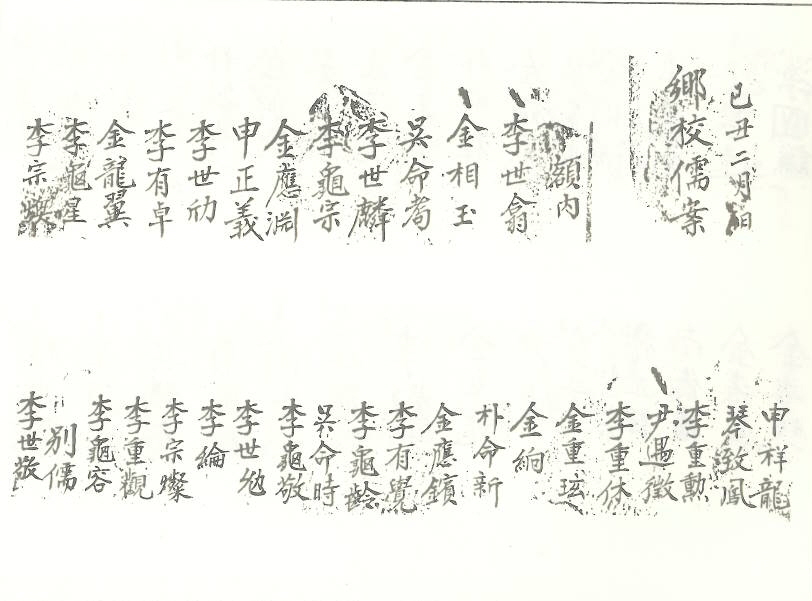 己丑二月 日
鄕校儒案
額內
李世翕
金相玉
吳命
李世麟
李龜宗
金應淵
申正義
李世
李有卓
金龍翼
李龜星
李宗
申祥龍
琴致鳳
李重勳
尹遇徵
李重休
金重玹
金絢
朴命新
金應鑌
李有覺
李龜齡
吳命時
李龜敬
李世勉
李綸
李宗燦
李重觀
李龜容
別儒
李世敬